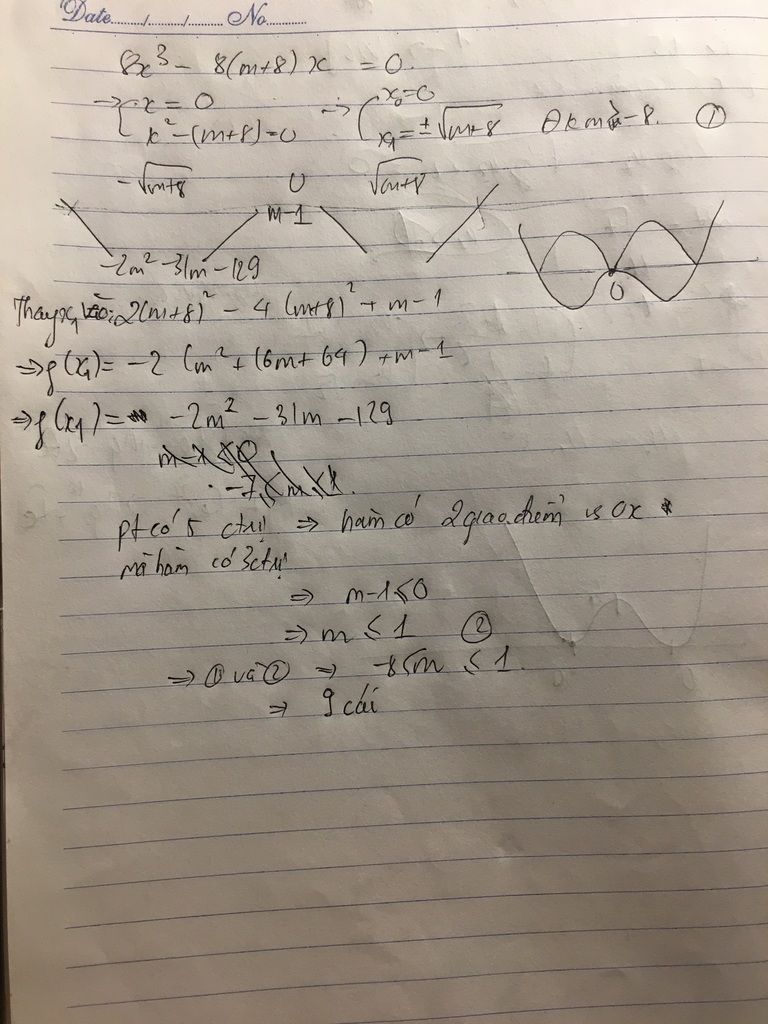 Date......./......../........ No..............
8x³ - 8(m+8) x = 0.
→ { x = 0 → { x₀ = 0
x² - (m+8) = 0 x₁ = ± √m+8 ĐK m > -8. ①
-√m+8 0 √m+8
m-1
-2m² - 31m - 129
0
Thay x₁ vào: 2(m+8)² - 4 (m+8)² + m - 1
⇒ f(x₁) = -2 (m² + 16m + 64) + m - 1
⇒ f(x₁) = -2m² - 31m - 129
pt có 5 ctrị ⇒ hàm có 2 giao điểm vs Ox
mà hàm có 3 ctrị
⇒ m-1 ≤ 0
⇒ m ≤ 1 ②
⇒ ① và ② ⇒ -8 < m ≤ 1.
⇒ 9 cái